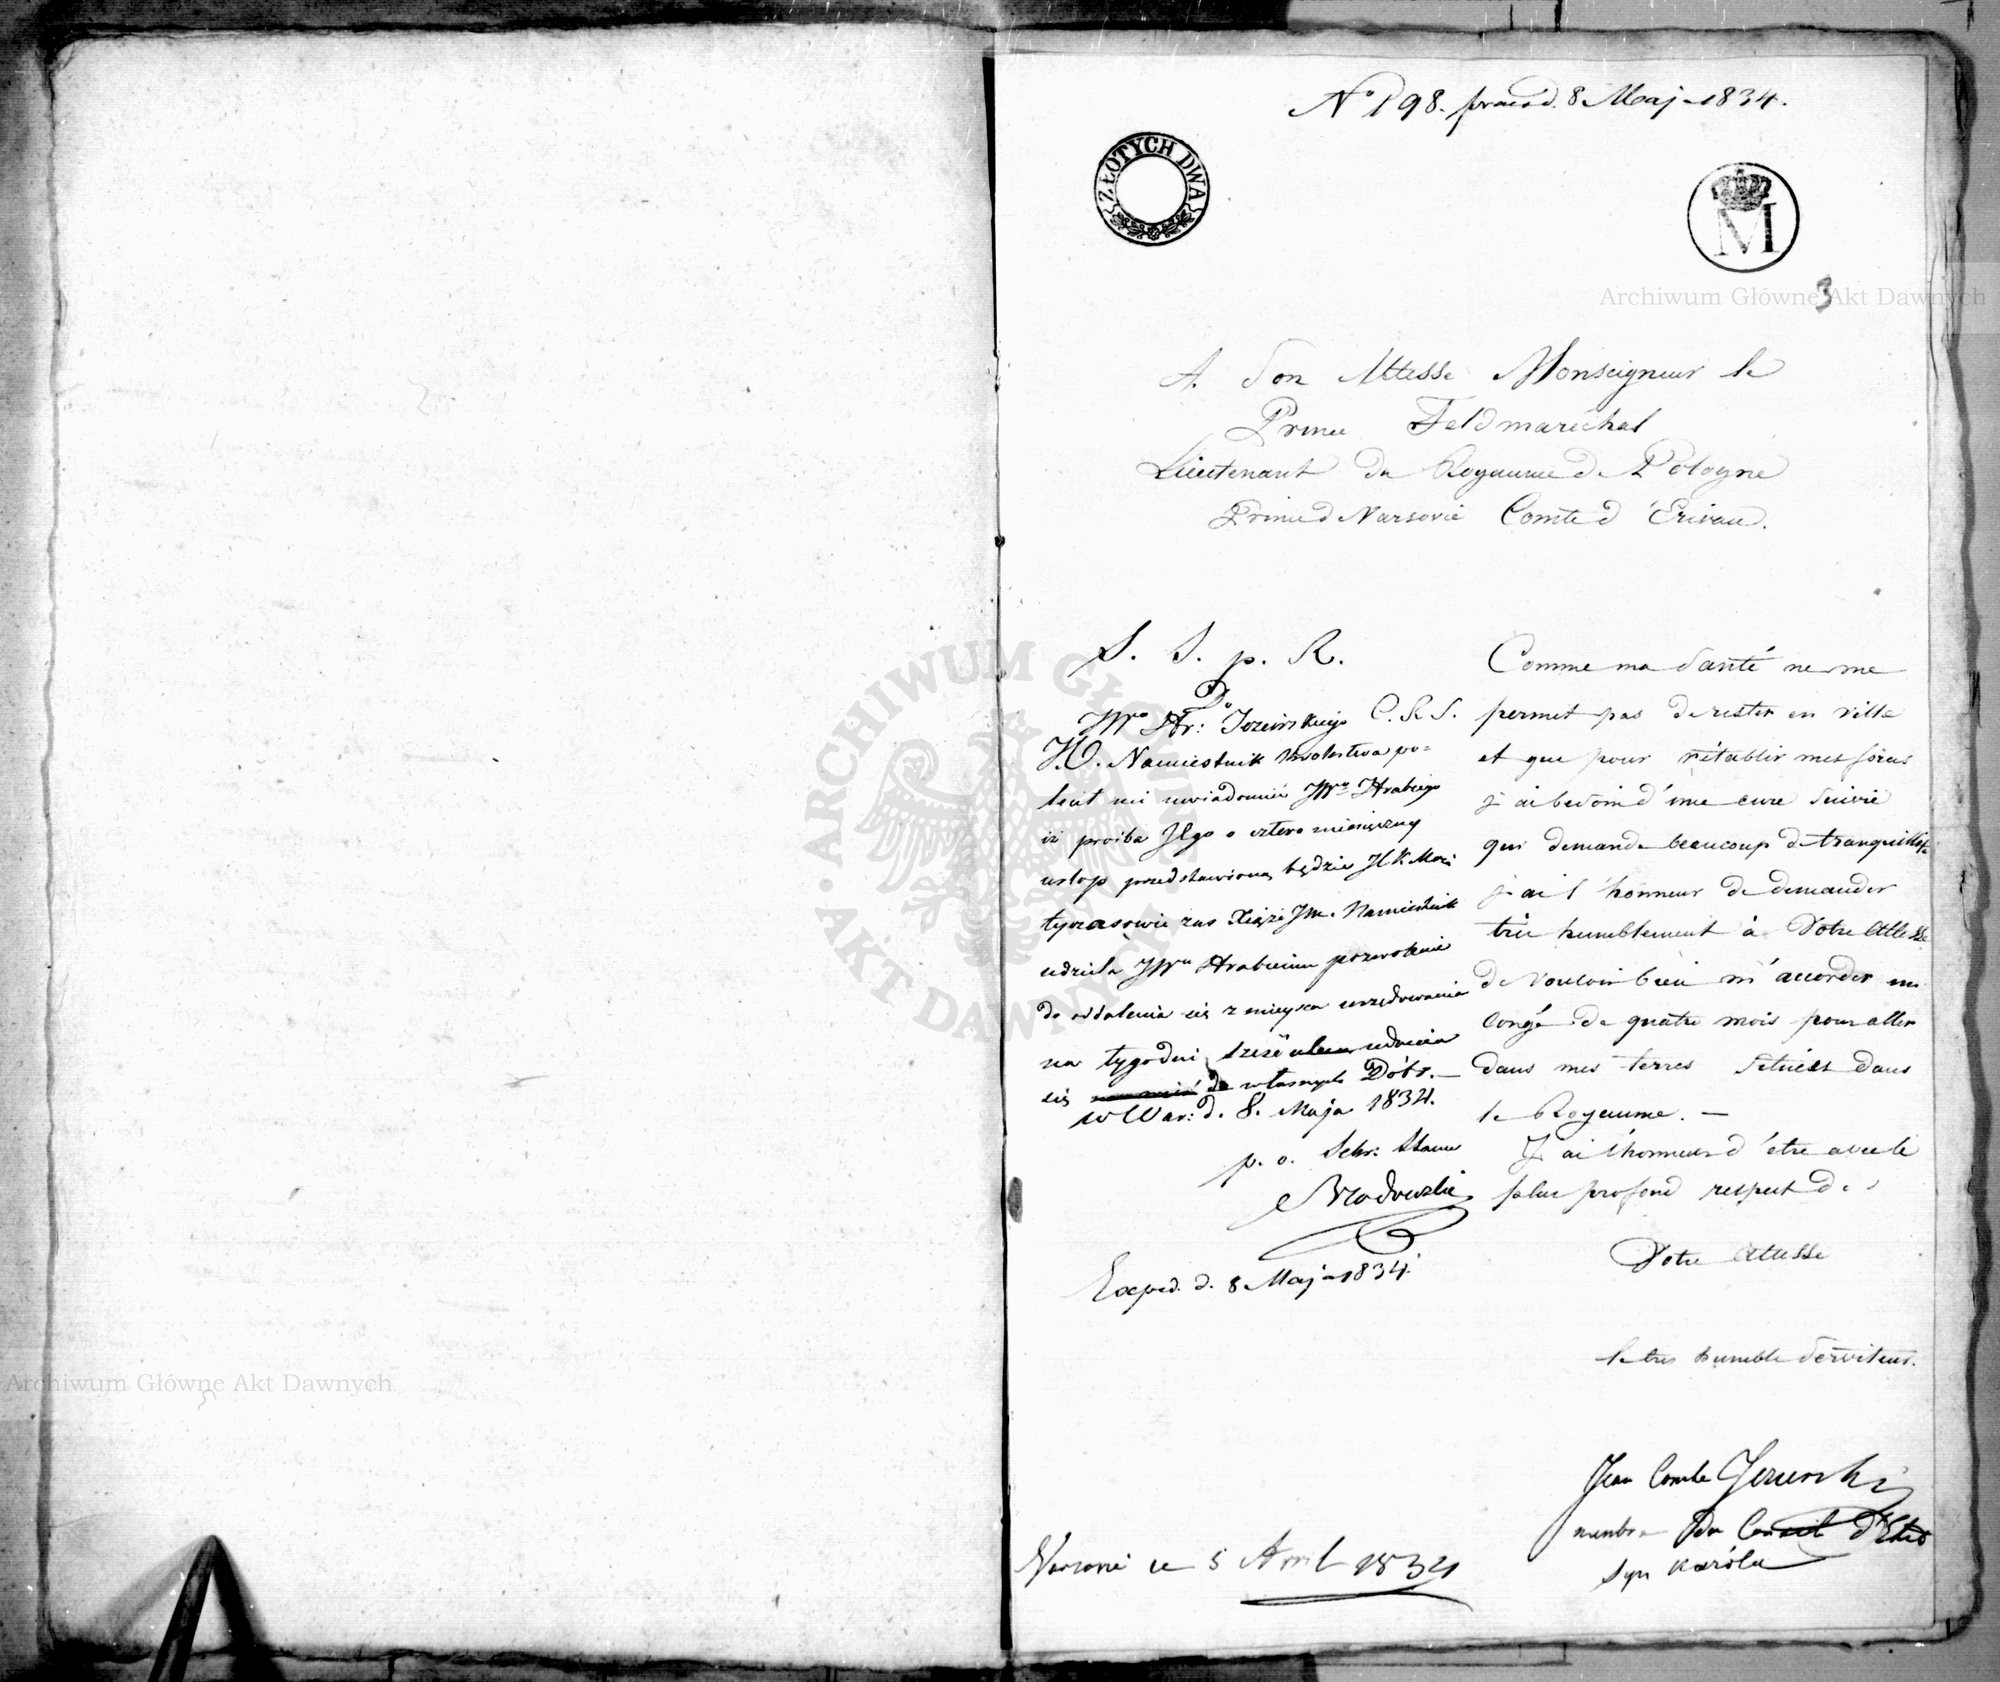 No 198. praes d. 8 Maja 1834.
ZŁOTYCH DWA
M I
3
A Son Altesse Monseigneur le
Prince Feldmaréchal
Lieutenant du Royaume de Pologne
Prince d Varsovie Comte d'Erivan.
S. S. p. R.
Do
JWo Hr: Jezierskiego C. R. S.
J.O. Namiestnik Królestwa po=
lecił mi uwiadomić JWo Hrabiego
iż prośba Jego o cztero miesięczny
urlop przedstawioną będzie J C K Mości
tymczasowie zas Xiąże Jm. Namiestnik
udziela JWu Hrabiemu pozwolenie
do oddalenia się z mieysca urzędowania
na tygodni sześć udania
się do własnych Dóbr. —
w War: d. 8. Maja 1834.
p. o. Sekr: Stanu
Exped. d. 8 Maja 1834.
Comme ma Santé ne me
permet pas de rester en ville
et que pour rétablir mes forces
j'ai besoin d'une cure suivie
qui demande beaucoup de tranquillité
j'ai l'honneur de demander
très humblement à Votre Altesse
de Vouloir bien m'accorder un
Congé de quatre mois pour aller
dans mes terres situées dans
le Royaume. —
J'ai l'honneur d'être avec le
plus profond respect de
Votre Altesse
le très humble Serviteur.
Jean Comte Jezierski
membre du Conseil d'Etat
syn Karóla
Varsovie ce 5 Avril 1834
Archiwum Główne Akt Dawnych
Archiwum Główne Akt Dawnych
ARCHIWUM GŁÓWNE AKT DAWNYCH